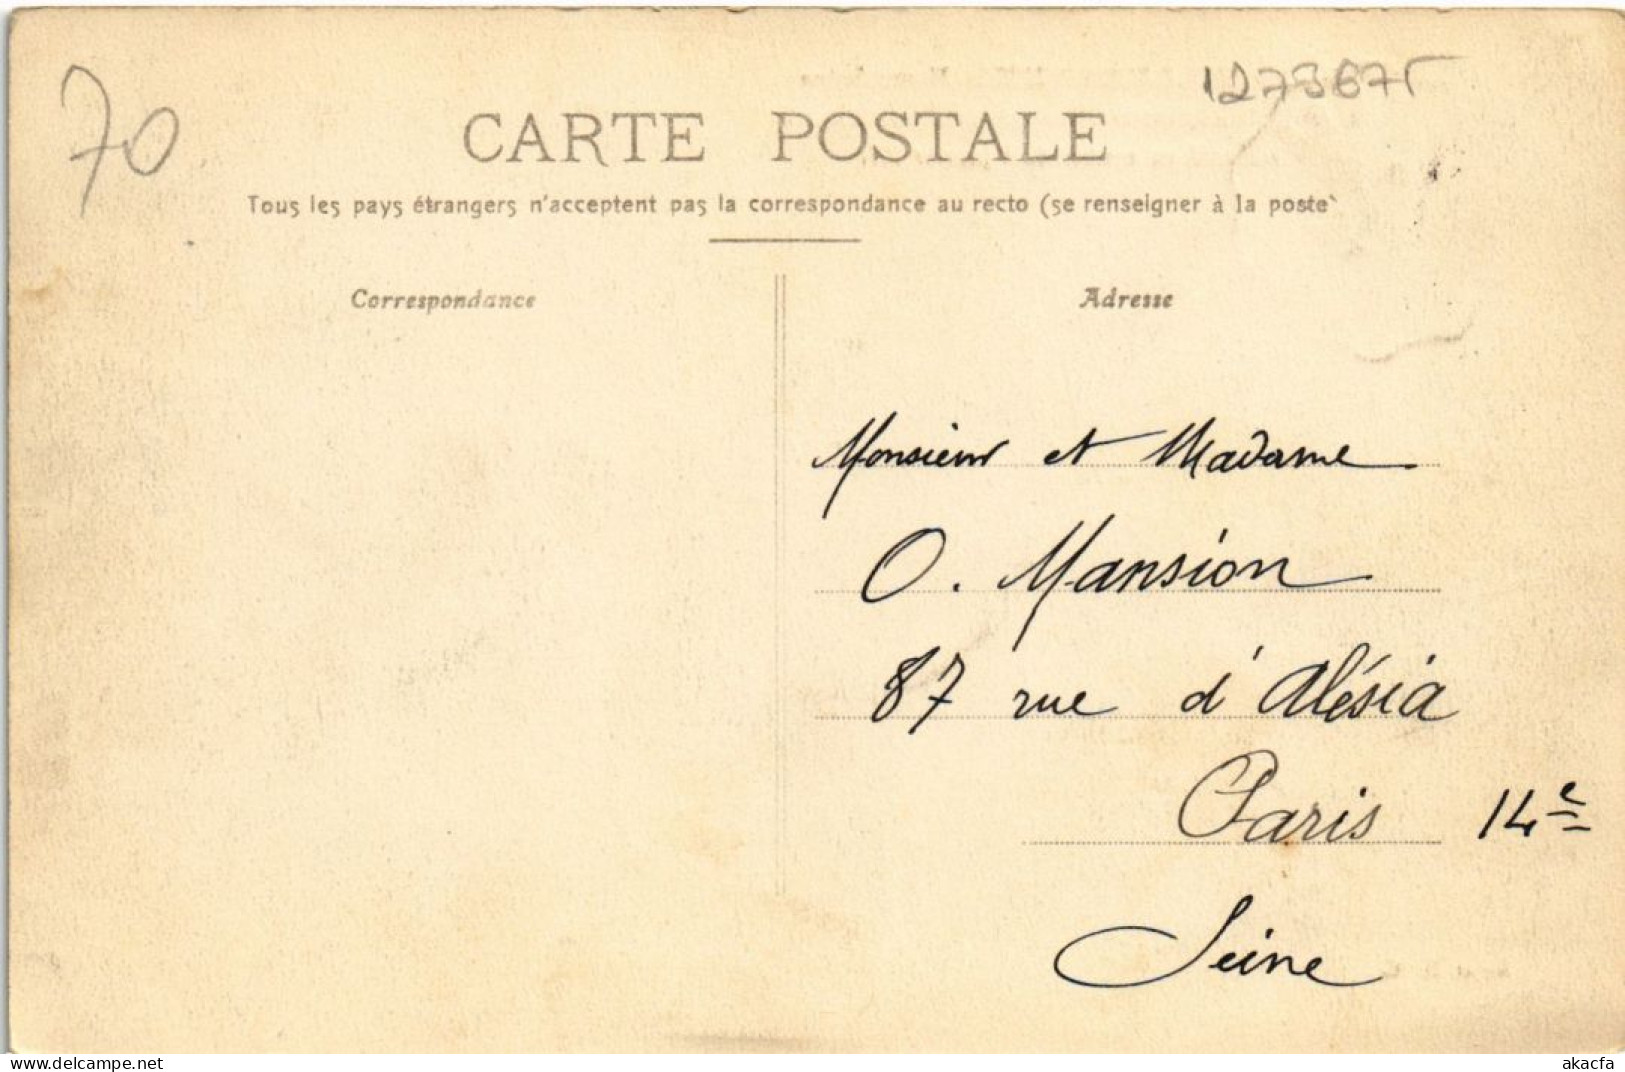 70
1273675
CARTE POSTALE
Tous les pays étrangers n'acceptent pas la correspondance au recto (se renseigner à la poste)
Correspondance
Adresse
Monsieur et Madame
O. Mansion
87 rue d'Alésia
Paris 14e
Seine
www.delcampe.net
akacfa